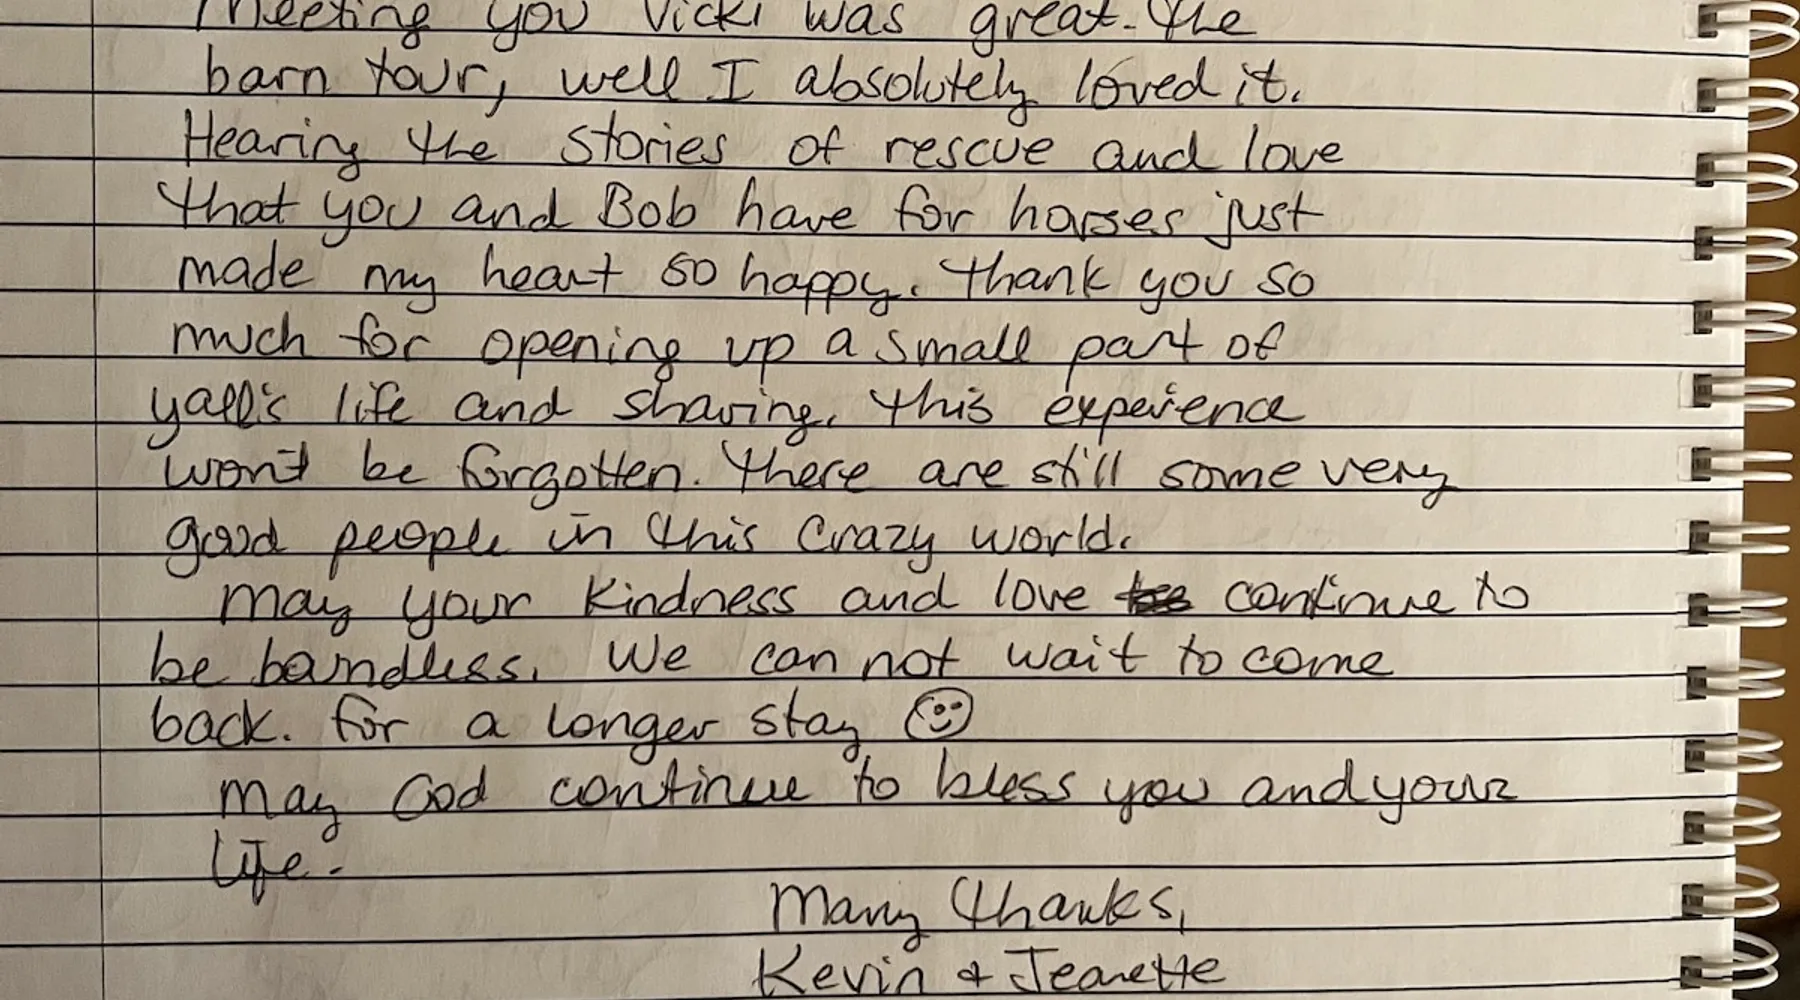 Meeting you Vicki was great. The
barn tour, well I absolutely loved it.
Hearing the stories of rescue and love
that you and Bob have for horses just
made my heart so happy. Thank you so
much for opening up a small part of
yall's life and sharing. This experience
won't be forgotten. There are still some very
good people in this crazy world.
May your kindness and love continue to
be boundless. We can not wait to come
back. for a longer stay ☺
May God continue to bless you and your
life.
Many thanks,
Kevin & Jeanette